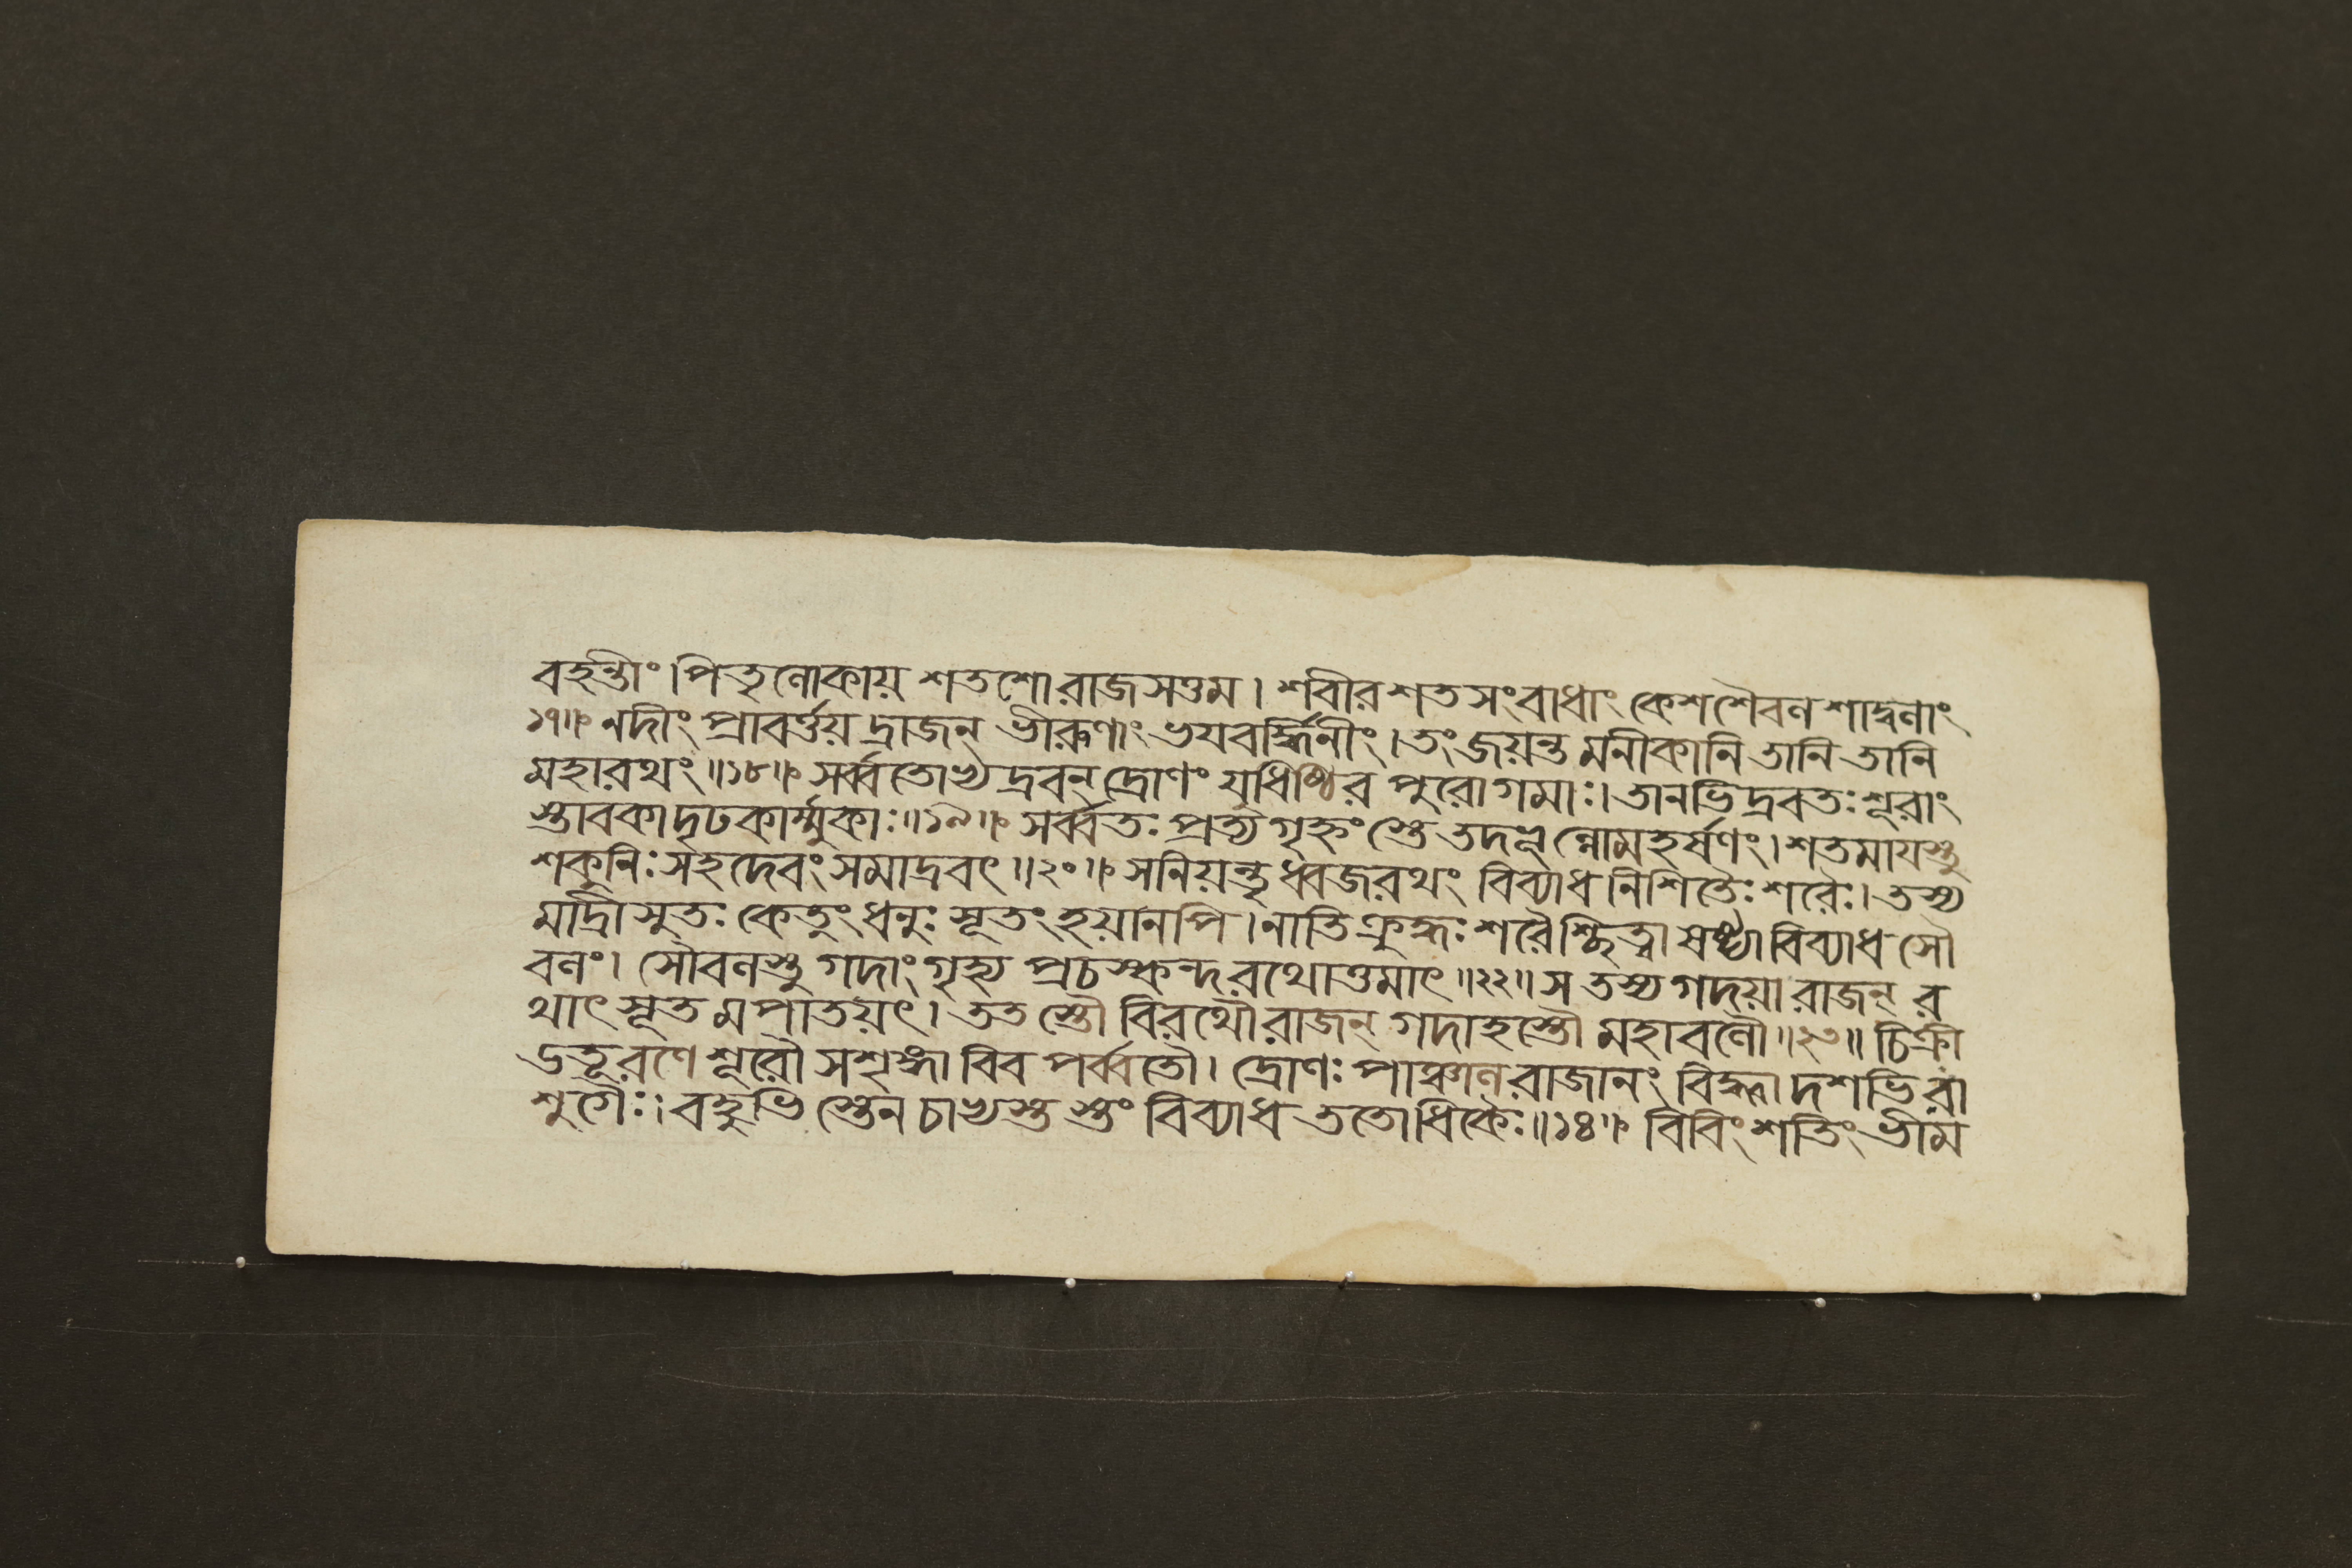 বহন্তীং।পিতৃলোকায় শতশো রাজসত্তম। শরীর শতসংবাধাং কেশশৈবলশাদ্বলাং
১৭॥ নদীং প্রাবর্ত্তয়দ্রাজন্ ভীরূণাং ভয়বর্দ্ধিনীং। তং জয়ন্তমনীকানি তানি তানি
মহারথং॥১৮॥ সর্ব্বতোভ্যদ্রবন্ দ্রোণং যুধিষ্ঠির পুরোগমাঃ। তানভিদ্রবতঃ শূরাং
স্তাবকা দৃঢকার্ম্মুকাঃ॥১৯॥ সর্ব্বতঃ প্রত্যগৃহ্ণংস্তে তদভূল্লোমহর্ষণং। শতমায়স্তু
শকুনিঃ সহদেবং সমাদ্রবৎ॥২০॥ সনিয়ন্তৃধ্বজরথং বিব্যাধ নিশিতৈঃ শরৈঃ। তস্য
মাদ্রীসুতঃ কেতুং ধনুঃ সূতং হয়ানপি। নাতিক্রুদ্ধঃ শরৈশ্ছিত্ত্বা ষষ্ট্যা বিব্যাধ সৌ
বলং। সৌবলস্তু গদাং গৃহ্য প্রচস্কন্দ রথোত্তমাৎ॥২২॥ স তস্য গদয়া রাজন্ র
থাৎ সূতমপাতয়ৎ। ততস্তৌ বিরথৌ রাজন্ গদাহস্তৌ মহাবলৌ॥২৩॥ চিক্রী
ডতূরণে শূরৌ সশৃঙ্গাবিব পর্ব্বতৌ। দ্রোণঃ পাঞ্চালরাজানং বিদ্ধ্বা দশভিরা
শুগৈঃ। বহুভিস্তেন চাভ্যস্তস্তং বিব্যাধ ততোধিকৈঃ॥১৪॥ বিবিংশতিং ভীম